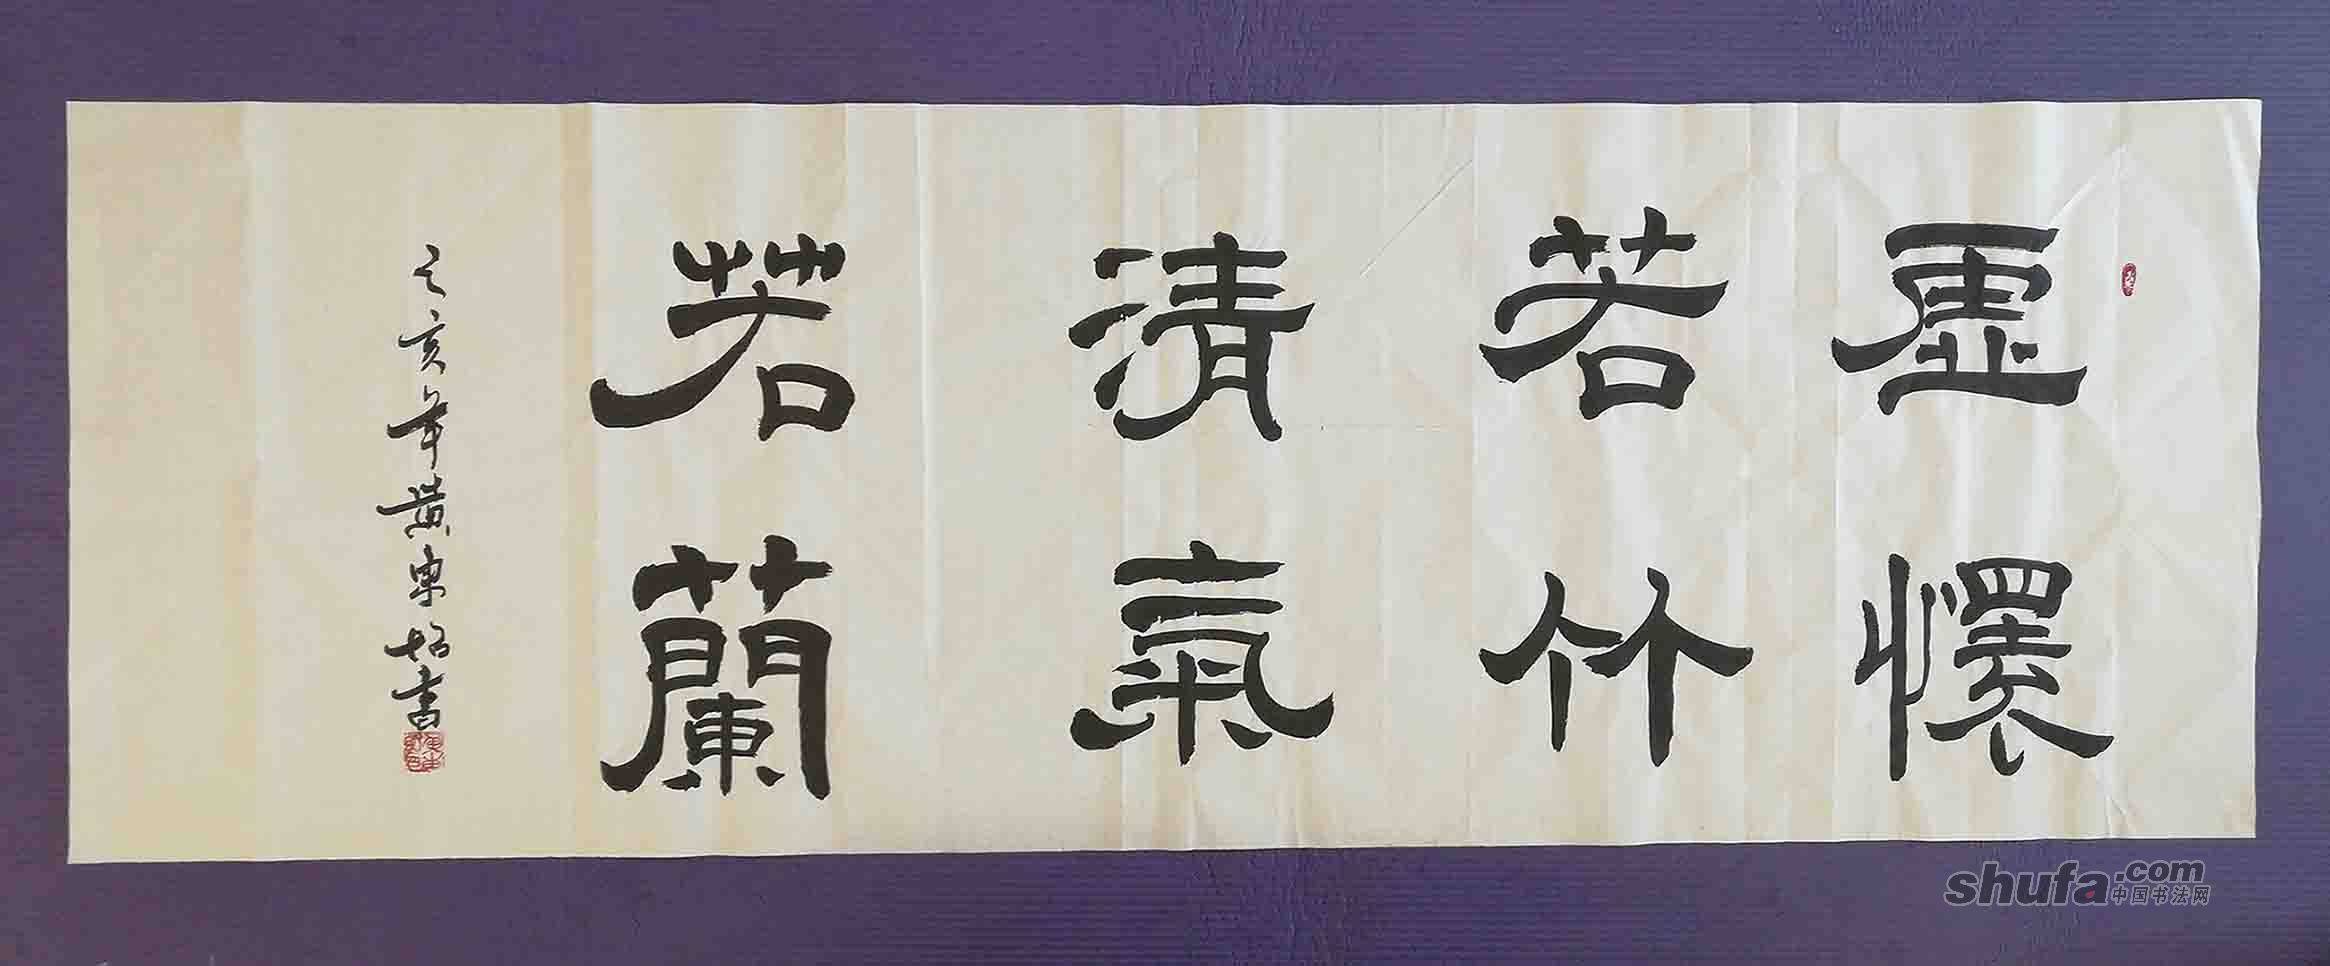 虛懷
若竹
清氣
若蘭
己亥年黃東坡書
shufa.com
中国书法网